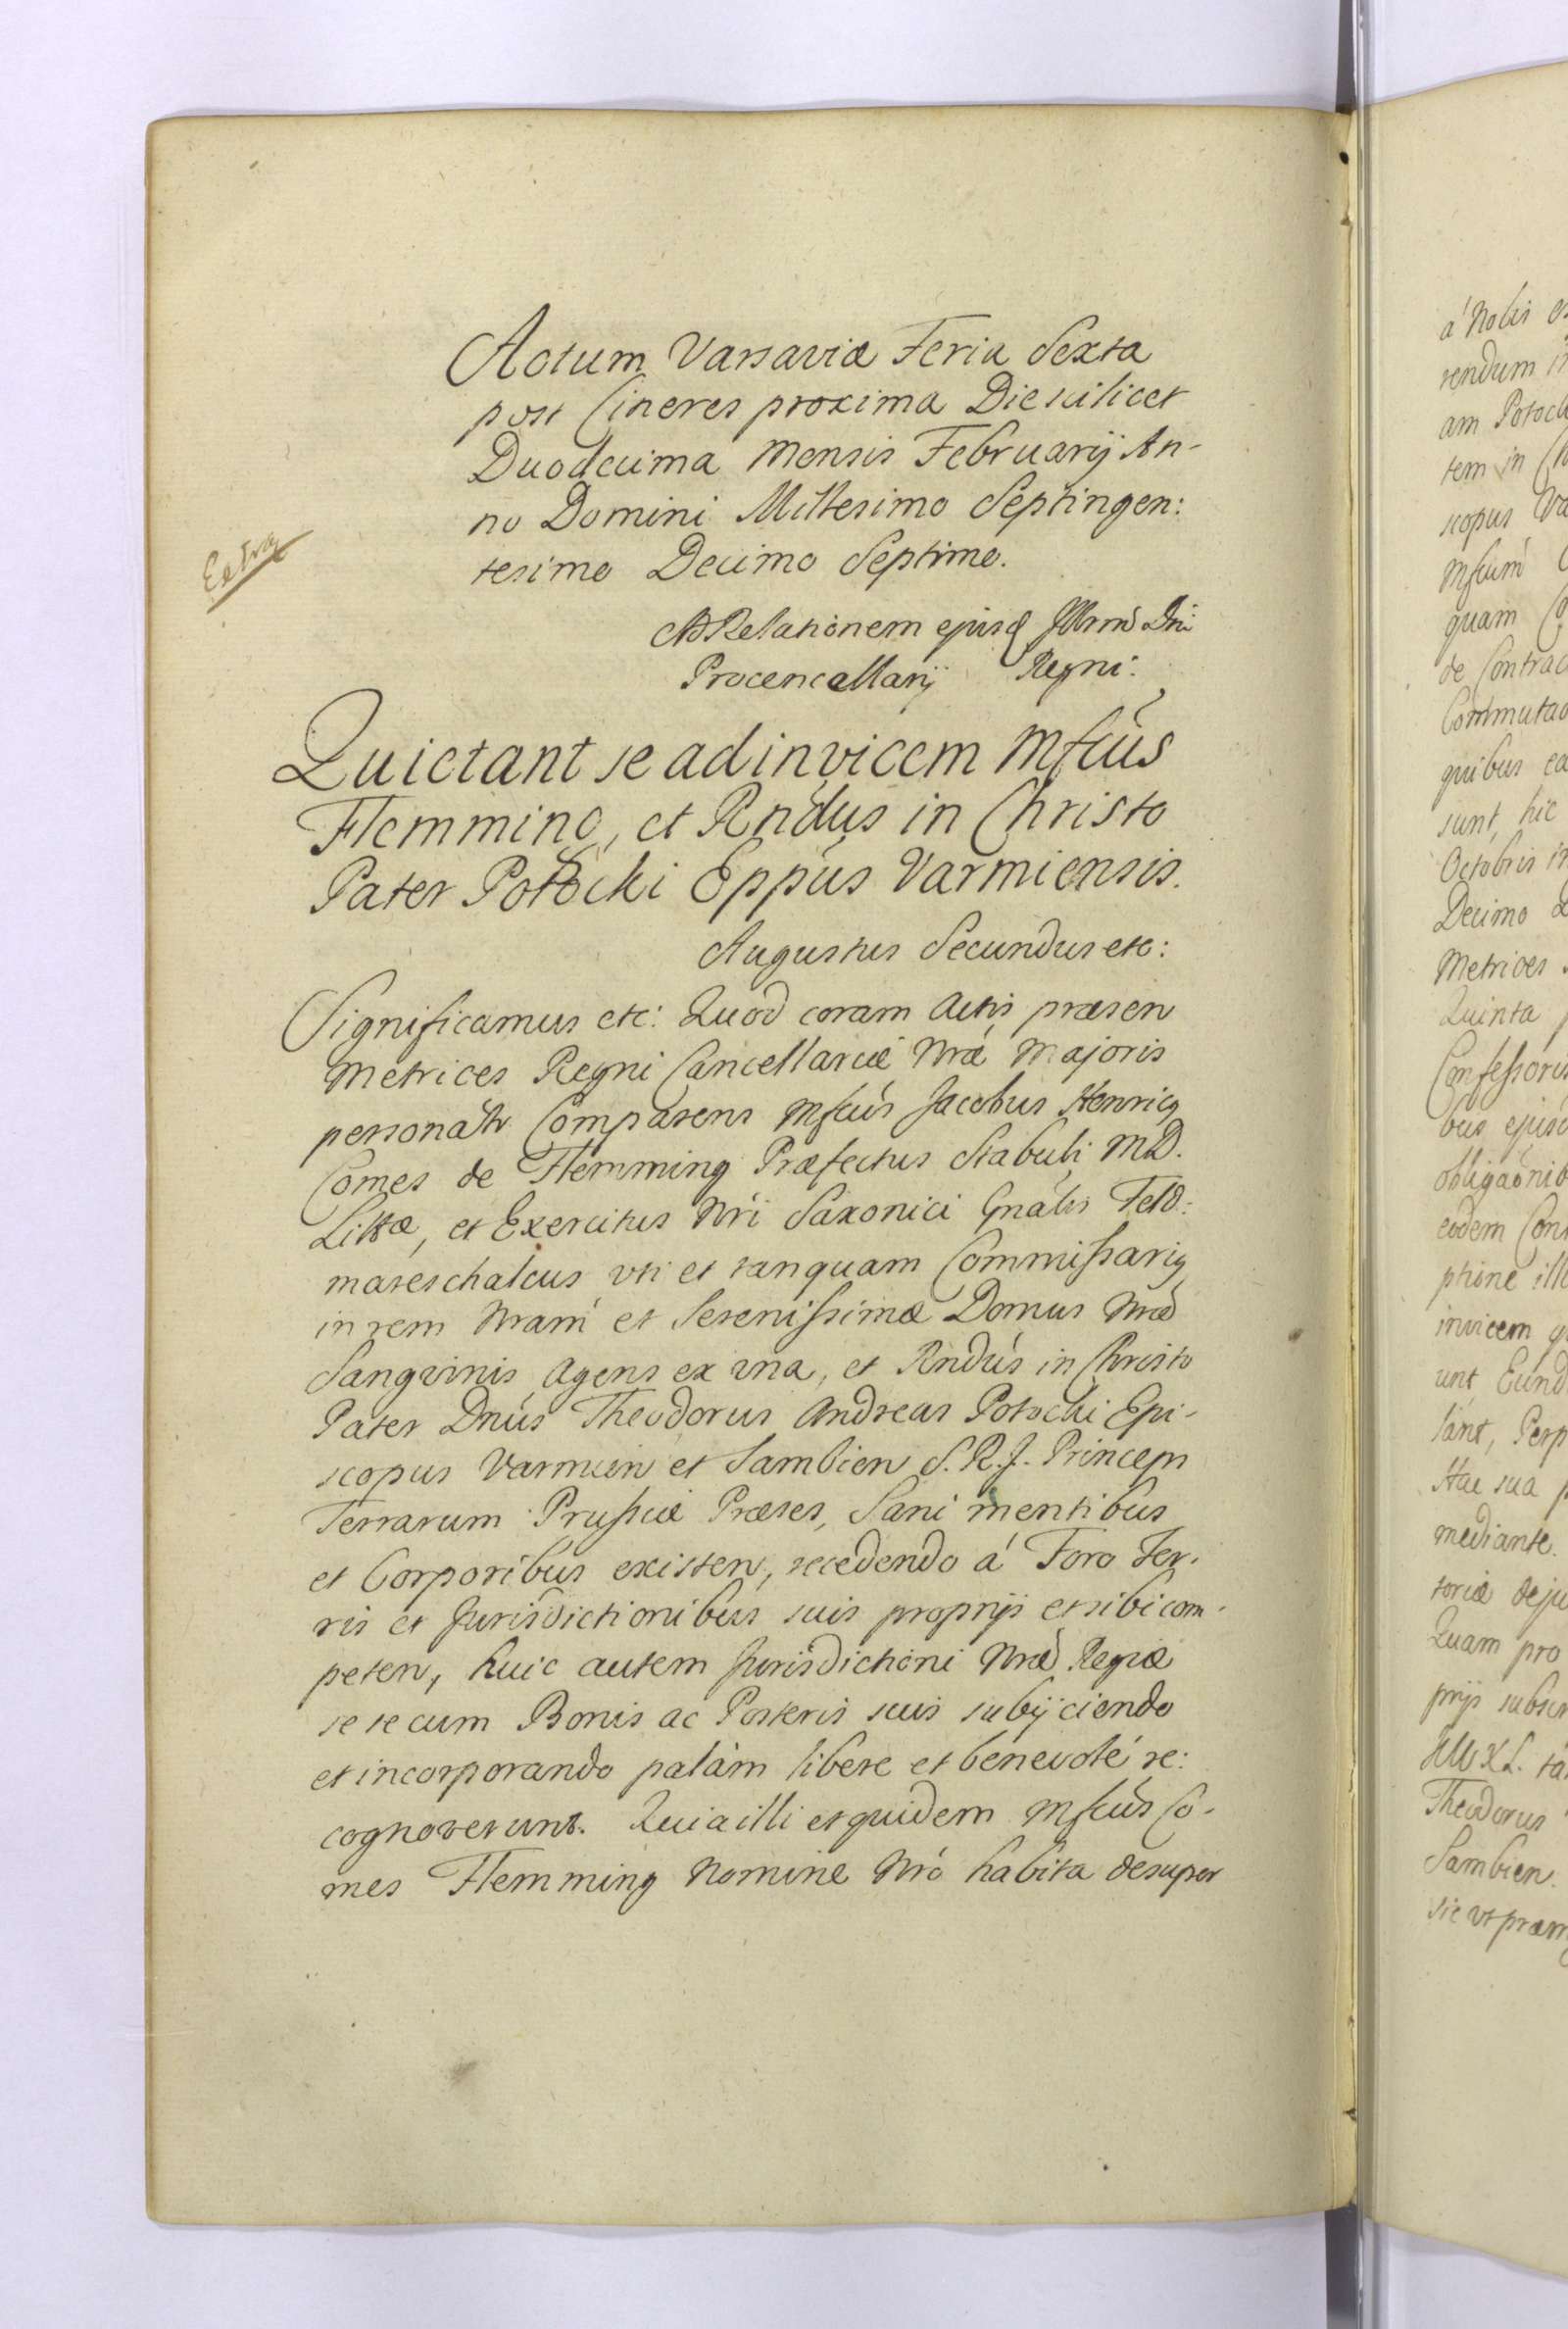 Actum Varsaviæ Feria Sexta
post Cineres proxima Die scilicet
Duodecima Mensis Februarij An-
no Domini Millesimo Septingen:
tesimo Decimo Septimo.
Extra
Ad Relationem ejusd Illrmi Dni
Procencellarij Regni.
Quietant se ad invicem Mfcus
Flemming, et Rndus in Christo
Pater Potocki Eppus Varmiensis.
Augustus Secundus etc:
Significamus etc: Quod coram Actis præsen
Metrices Regni Cancellariæ Nræ Majoris
personalr Comparens Mfcus Jacobus Henricq
Comes de Flemming Præfectus Stabuli M.D.
Littæ, et Exercitus Nri Saxonici Gnalis Feld:
mareschalcus uti et tanquam Commissariq
in rem Nram et Serenissimæ Domus Nræ
Sangvinis Agens ex una, et Rndus in Christo
Pater Dnus Theodorus Andreas Potocki Epi-
scopus Varmien et Sambien S.R.J. Princeps
Terrarum Prussiæ Præses, Sani mentibus
et Corporibus existen, recedendo á Foro Ter-
ris et Jurisdictionibus suis proprijs et sibi com-
peten, huic autem Jurisdictioni Nræ Regiæ
se se cum Bonis ac Posteris suis subijciendo
et incorporando palàm libere et benevolé re:
cognoverunt. Quia illi et quidem Mfcus Co-
mes Flemming Nomine Nro habita desuper
á Nobis
rendum
am
tem in
scopus
Mfcum
quam
de
quibus
sunt, hic
Octobris
Decimo
Metrices
Quinta
bus
eodem
ptione
invicem
unt
Hac sua
mediante
toriæ
Quam pro
prijs
Theodorus
Sambien.
sic ut